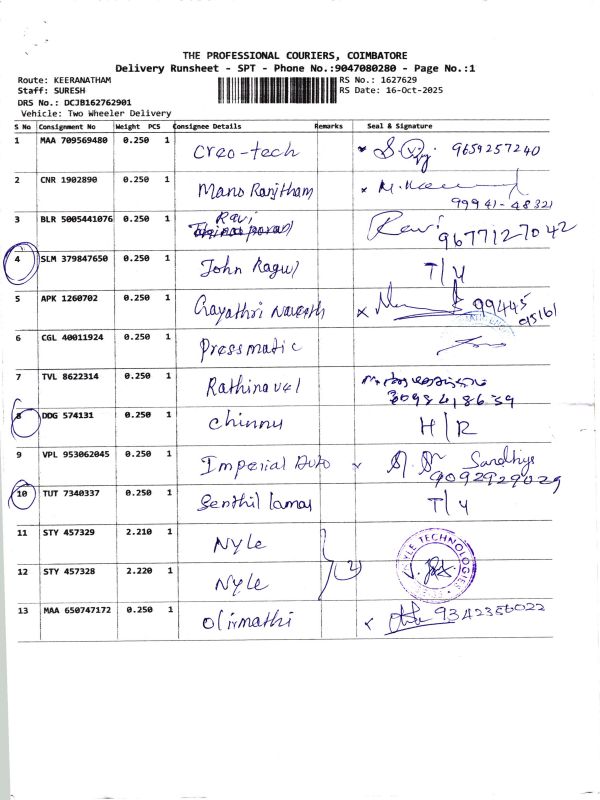 THE PROFESSIONAL COURIERS, COIMBATORE
Delivery Runsheet - SPT - Phone No.:9047080280 - Page No.:1
Route: KEERANATHAM RS No.: 1627629
Staff: SURESH RS Date: 16-Oct-2025
DRS No.: DCJB162762901
Vehicle: Two Wheeler Delivery
S No Consignment No Weight PCS Consignee Details Remarks Seal & Signature
1 MAA 709569480 0.250 1 Creo-tech 9659257240
2 CNR 1902890 0.250 1 Mano Ranjtham
99941-48321
3 BLR 5005441076 0.250 1 Ravi Ravi
9677127042
4 SLM 379847650 0.250 1 John Ragul T/4
5 APK 1260702 0.250 1 Gayathri Naveeth 99445
95161
6 CGL 40011924 0.250 1 Pressmatic
7 TVL 8622314 0.250 1 Rathinavel
8 DDG 574131 0.250 1 Chinnu H/R
9 VPL 953062045 0.250 1 Imperial Auto Sandhya
9092929029
10 TUT 7340337 0.250 1 Senthil T/4
11 STY 457329 2.210 1 Nyle
12 STY 457328 2.220 1 Nyle 2
NYLE TECHNOLOGIES
13 MAA 650747172 0.250 1 Olirmathi 9342356022